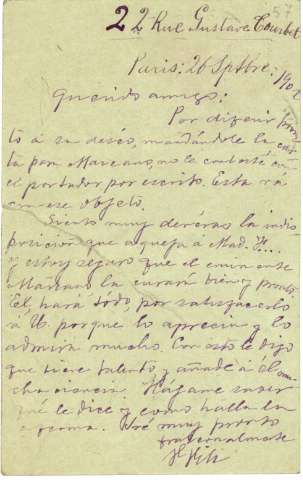 22 Rue Gustave Courbet
57
Paris: 26 Sptbre: 190
Querido amigo:
Por
to á su deseo, mandándole la car
ta para Mareano, no le contesté con
el portador por escrito. Esta vá
con ese objeto.
Siento muy deveras la indis
posicion que aqueja á Mad.
y estoy seguro que el eminente
Mareano la curará bien y pronto
El hará todo por satisfacerlo
á U. porque lo aprecia y lo
admira mucho. Con esto le digo
que tiene talento y añade á él mu
cha ciencia. Hágame saber
qué le dice y como halla la
enferma. Iré muy pronto
fraternalmente